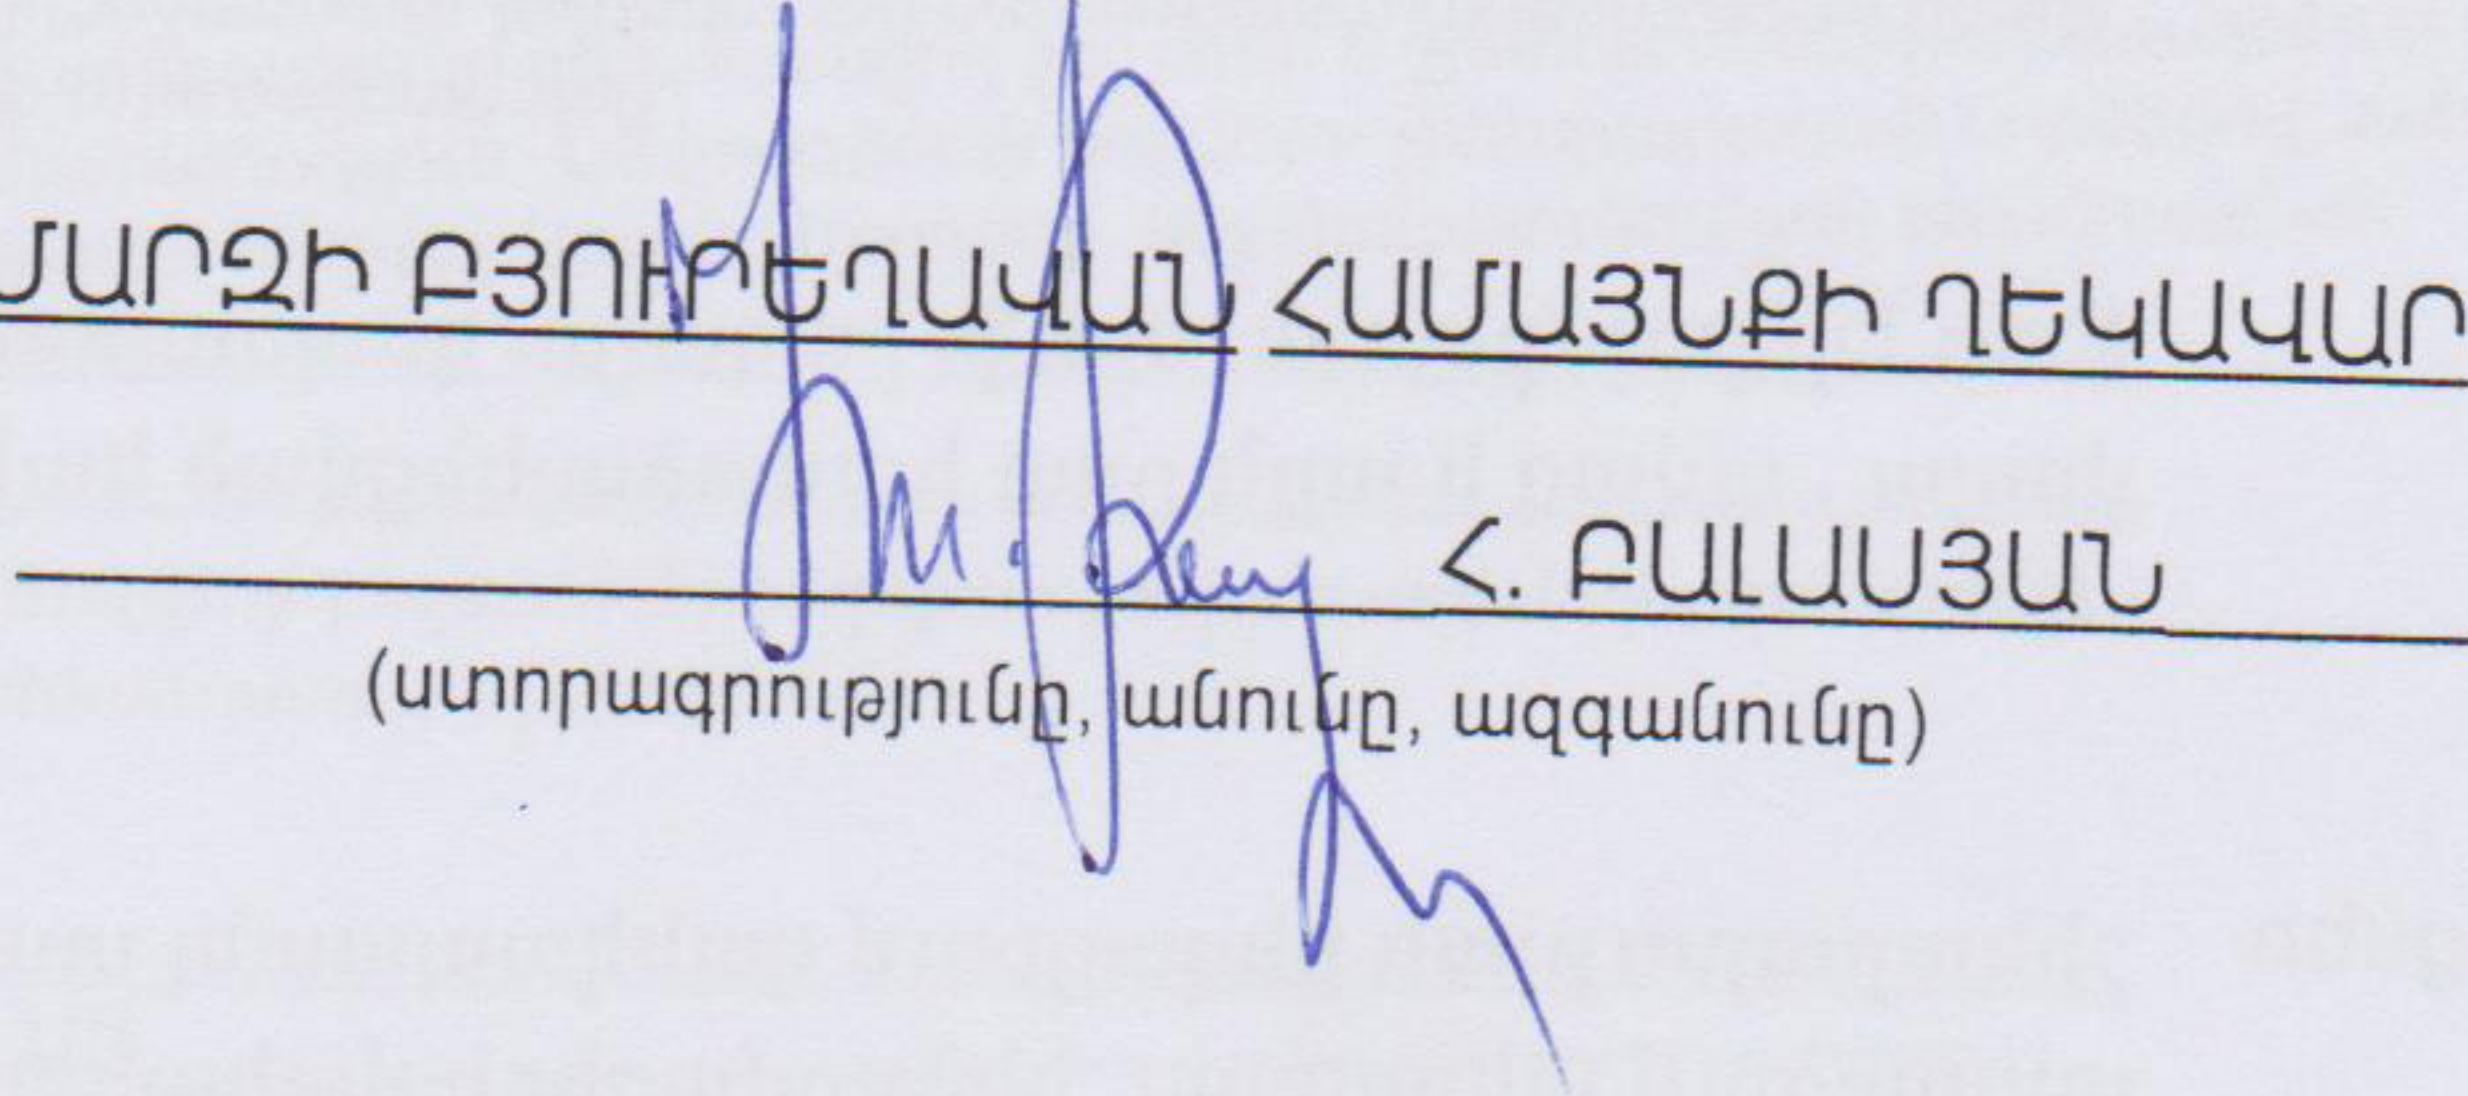 ՄԱՐԶԻ ԲՅՈՒՐԵՂԱՎԱՆ ՀԱՄԱՅՆՔԻ ՂԵԿԱՎԱՐ
Հ. ԲԱԼԱՍՅԱՆ
(ստորագրությունը, անունը, ազգանունը)